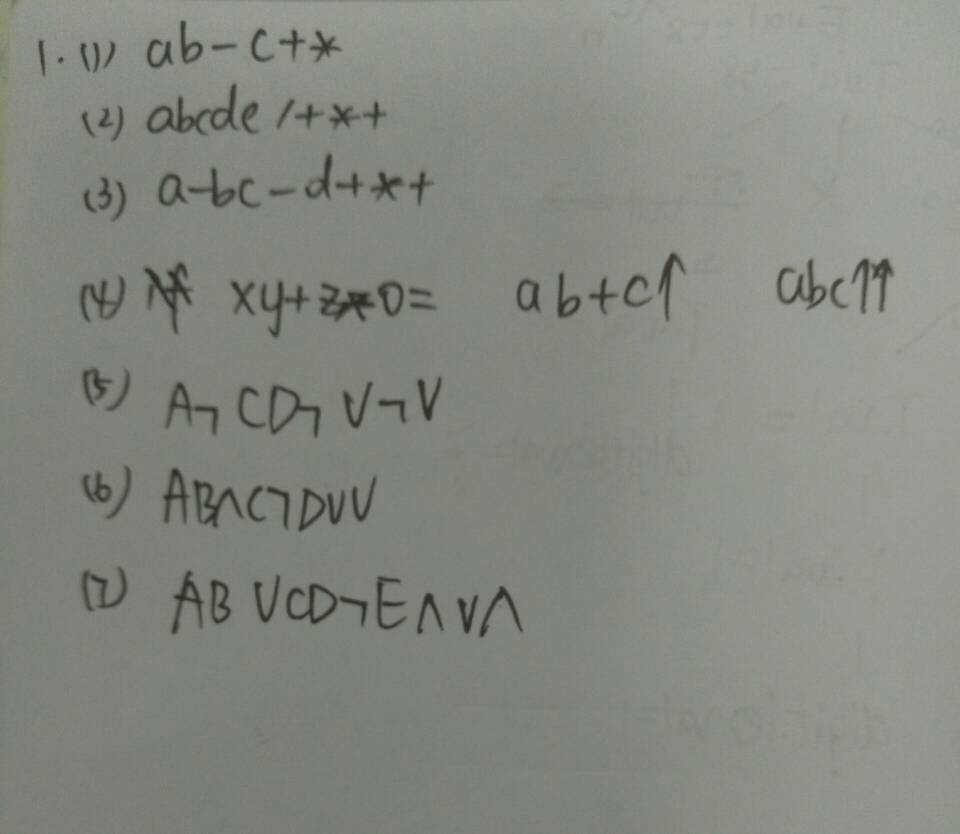 1. (1) ab-c+*
(2) abcde/+*+
(3) a-bc-d+*+
(4) xy+z*0= ab+c↑ abc↑↑
(5) A¬CD¬V¬V
(6) AB∧C¬DVV
(7) ABVCD¬E∧V∧